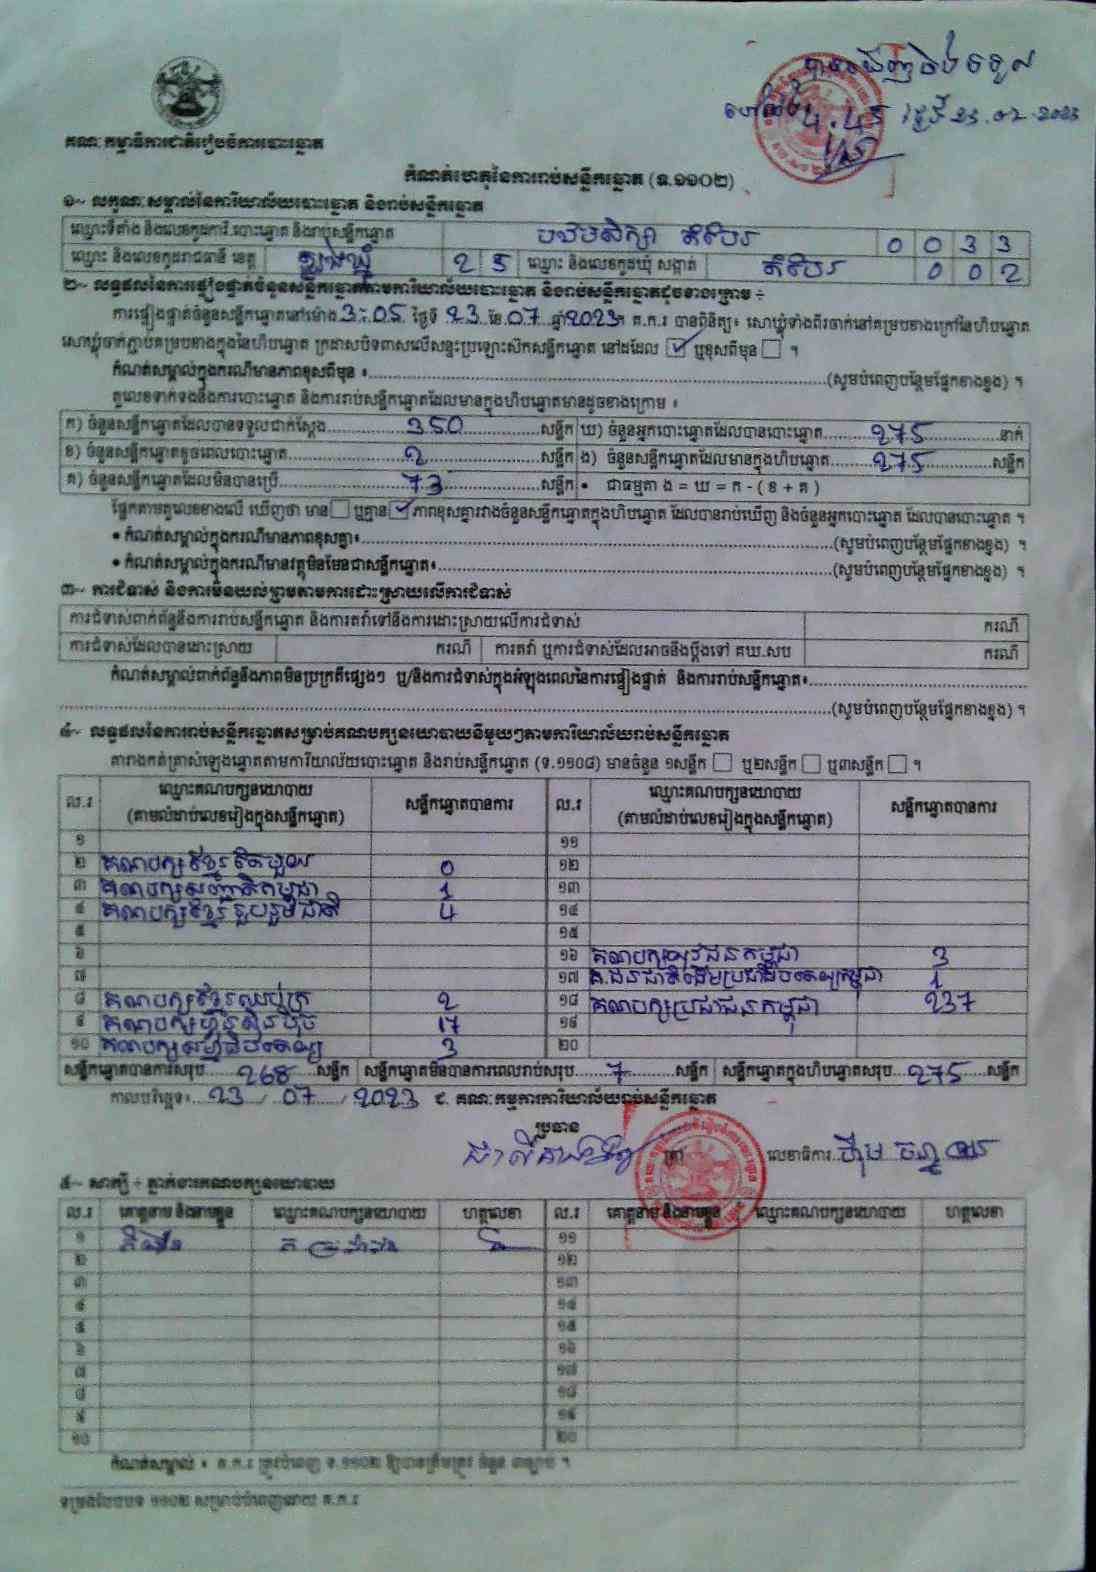 គណៈកម្មាធិការជាតិរៀបចំការបោះឆ្នោត
បានឃើញនិងទទួល
ម៉ោង 4.45 ថ្ងៃទី 23.07.2023
កំណត់ហេតុនៃការរាប់សន្លឹកឆ្នោត (ទ.១១០២)
១~ លក្ខណៈសម្គាល់នៃការិយាល័យបោះឆ្នោត និងរាប់សន្លឹកឆ្នោត
ឈ្មោះទីតាំង និងលេខកូដការិ.បោះឆ្នោត និងរាប់សន្លឹកឆ្នោត បឋមសិក្សា 0 0 3 3
ឈ្មោះ និងលេខកូដរាជធានី ខេត្ត ត្បូងឃ្មុំ 2 5 ឈ្មោះ និងលេខកូដឃុំ សង្កាត់ 0 0 2
២~ លទ្ធផលនៃការផ្ទៀងផ្ទាត់ចំនួនសន្លឹកឆ្នោតតាមការិយាល័យបោះឆ្នោត និងរាប់សន្លឹកឆ្នោតដូចខាងក្រោម ÷
ការផ្ទៀងផ្ទាត់ចំនួនសន្លឹកឆ្នោតនៅម៉ោង 3:05 ថ្ងៃទី 23 ខែ 07 ឆ្នាំ 2023។ គ.ក.រ បានពិនិត្យ៖ សោឃ្លុំទាំងពីរចាក់នៅគម្របខាងក្រៅនៃហិបឆ្នោត
សោឃ្លុំចាក់ភ្ជាប់គម្របខាងក្នុងនៃហិបឆ្នោត ក្រដាសបិទពាសលើសន្ទះប្រឡោះសិកសន្លឹកឆ្នោត នៅដដែល ☑ ឬខុសពីមុន ☐ ។
កំណត់សម្គាល់ក្នុងករណីមានភាពខុសពីមុន ៖ (សូមបំពេញបន្ថែមផ្នែកខាងខ្នង) ។
តួលេខទាក់ទងនឹងការបោះឆ្នោត និងការរាប់សន្លឹកឆ្នោតដែលមានក្នុងហិបឆ្នោតមានដូចខាងក្រោម ៖
ក) ចំនួនសន្លឹកឆ្នោតដែលបានទទួលជាក់ស្តែង 350 សន្លឹក ឃ) ចំនួនអ្នកបោះឆ្នោតដែលបានបោះឆ្នោត 275 នាក់
ខ) ចំនួនសន្លឹកឆ្នោតខូចពេលបោះឆ្នោត 2 សន្លឹក ង) ចំនួនសន្លឹកឆ្នោតដែលមានក្នុងហិបឆ្នោត 275 សន្លឹក
គ) ចំនួនសន្លឹកឆ្នោតដែលមិនបានប្រើ 73 សន្លឹក • ជាធម្មតា ង = ឃ = ក - ( ខ + គ )
ផ្អែកតាមតួលេខខាងលើ ឃើញថា មាន ☐ ឬគ្មាន ☑ ភាពខុសគ្នារវាងចំនួនសន្លឹកឆ្នោតក្នុងហិបឆ្នោត ដែលបានរាប់ឃើញ និងចំនួនអ្នកបោះឆ្នោត ដែលបានបោះឆ្នោត ។
• កំណត់សម្គាល់ក្នុងករណីមានភាពខុសគ្នា៖ (សូមបំពេញបន្ថែមផ្នែកខាងខ្នង) ។
• កំណត់សម្គាល់ក្នុងករណីមានវត្ថុមិនមែនជាសន្លឹកឆ្នោត៖ (សូមបំពេញបន្ថែមផ្នែកខាងខ្នង) ។
៣~ ការជំទាស់ និងការមិនយល់ព្រមតាមការដោះស្រាយលើការជំទាស់
ការជំទាស់ពាក់ព័ន្ធនឹងការរាប់សន្លឹកឆ្នោត និងការតវ៉ាទៅនឹងការដោះស្រាយលើការជំទាស់ ករណី
ការជំទាស់ដែលបានដោះស្រាយ ករណី ការតវ៉ា ឬការជំទាស់ដែលអាចនឹងប្តឹងទៅ គឃ.សប ករណី
កំណត់សម្គាល់ពាក់ព័ន្ធនឹងភាពមិនប្រក្រតីផ្សេងៗ ឬ/និងការជំទាស់ក្នុងអំឡុងពេលនៃការផ្ទៀងផ្ទាត់ និងការរាប់សន្លឹកឆ្នោត៖
(សូមបំពេញបន្ថែមផ្នែកខាងខ្នង) ។
៤~ លទ្ធផលនៃការរាប់សន្លឹកឆ្នោតសម្រាប់គណបក្សនយោបាយនីមួយៗតាមការិយាល័យរាប់សន្លឹកឆ្នោត
តារាងកត់ត្រាសំឡេងឆ្នោតតាមការិយាល័យបោះឆ្នោត និងរាប់សន្លឹកឆ្នោត (ទ.១១០៨) មានចំនួន ១សន្លឹក ☐ ឬ២សន្លឹក ☐ ឬ៣សន្លឹក ☐ ។
ល.រ ឈ្មោះគណបក្សនយោបាយ (តាមលំដាប់លេខរៀងក្នុងសន្លឹកឆ្នោត) សន្លឹកឆ្នោតបានការ ល.រ ឈ្មោះគណបក្សនយោបាយ (តាមលំដាប់លេខរៀងក្នុងសន្លឹកឆ្នោត) សន្លឹកឆ្នោតបានការ
១ ១១
២ គណបក្សខ្មែរតែមួយ 0 ១២
៣ គណបក្សសញ្ជាតិកម្ពុជា 1 ១៣
៤ គណបក្សខ្មែររួបរួមជាតិ 4 ១៤
៥ ១៥
៦ ១៦ គណបក្សយុវជនកម្ពុជា 3
៧ ១៧ គ.ជនជាតិដើមប្រជាធិបតេយ្យកម្ពុជា 1
៨ គណបក្សខ្មែរឈប់ក្រ 2 ១៨ គណបក្សប្រជាជនកម្ពុជា 237
៩ គណបក្សហ្វ៊ុនស៊ិនប៉ិច 17 ១៩
១០ គណបក្សសំបុកឃ្មុំ 3 ២០
សន្លឹកឆ្នោតបានការសរុប 268 សន្លឹក សន្លឹកឆ្នោតមិនបានការពេលរាប់សរុប 7 សន្លឹក សន្លឹកឆ្នោតក្នុងហិបឆ្នោតសរុប 275 សន្លឹក
កាលបរិច្ឆេទ៖ 23 / 07 / 2023 ជ. គណៈកម្មការការិយាល័យរាប់សន្លឹកឆ្នោត
ប្រធាន
ត្រា លេខាធិការ
៥~ សាក្សី ÷ ភ្នាក់ងារគណបក្សនយោបាយ
ល.រ គោត្តនាម និងនាមខ្លួន ឈ្មោះគណបក្សនយោបាយ ហត្ថលេខា ល.រ គោត្តនាម និងនាមខ្លួន ឈ្មោះគណបក្សនយោបាយ ហត្ថលេខា
១ ១១
២ ១២
៣ ១៣
៤ ១៤
៥ ១៥
៦ ១៦
៧ ១៧
៨ ១៨
៩ ១៩
១០ ២០
កំណត់សម្គាល់ ៖ គ.ក.រ ត្រូវបំពេញ ទ.១១០២ ឱ្យបានត្រឹមត្រូវ ចំនួន ៣ច្បាប់ ។
ទម្រង់បែបបទ ១១០២ សម្រាប់បំពេញដោយ គ.ក.រ